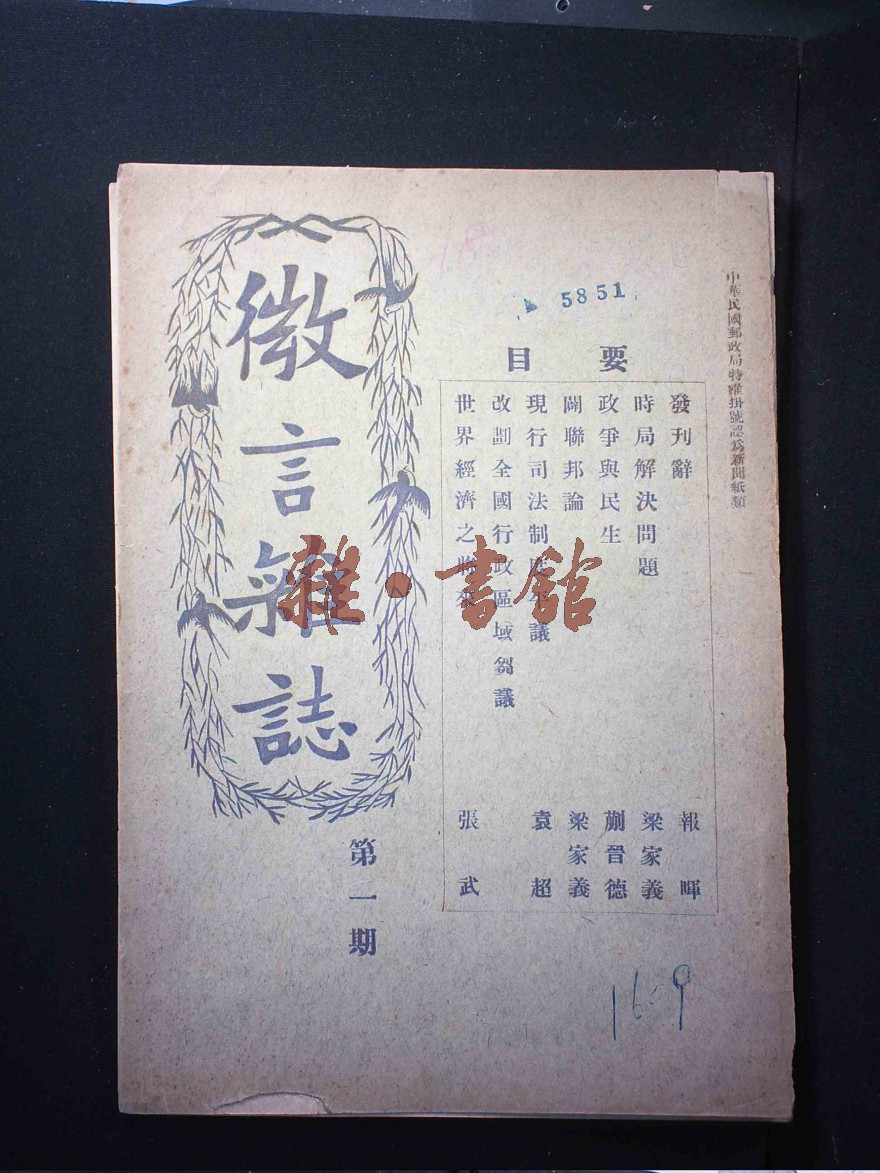 中華民國郵政局特准掛號認爲新聞紙類
18
5851
要目
發刊辭 報暉
時局解決問題 梁家義
政爭與民生 蒯晉德
闢聯邦論 梁家義
現行司法制 議 袁超
改劃全國行政區域芻議
世界經濟之 張武
微言雜誌
第一期
雜·書館